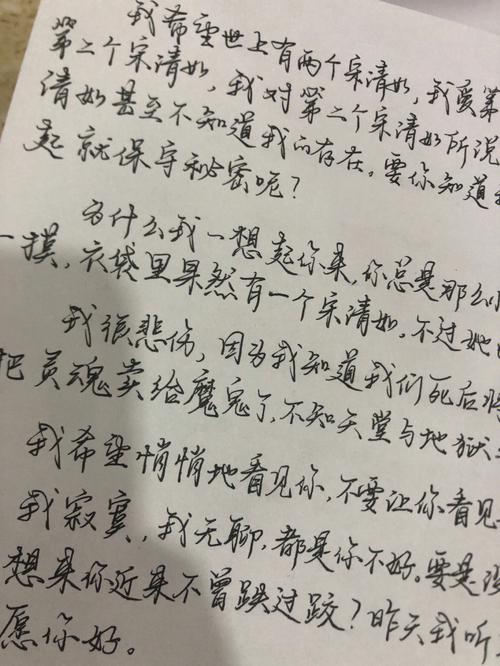 我希望世上有两个宋清如，我爱第
第二个宋清如，我对第二个宋清如所说
清如甚至不知道我的存在。要你知道我
起就保守秘密呢？
为什么我一想起你来，你总是那么小
一摸，衣袋里果然有一个宋清如，不过她
我很悲伤，因为我知道我们死后将
把灵魂卖给魔鬼了，不知天堂与地狱
我希望悄悄地看见你，不要让你看见
我寂寞，我无聊，都是你不好。要是没
想来你近来不曾跌过跤？昨天我听
愿你好。